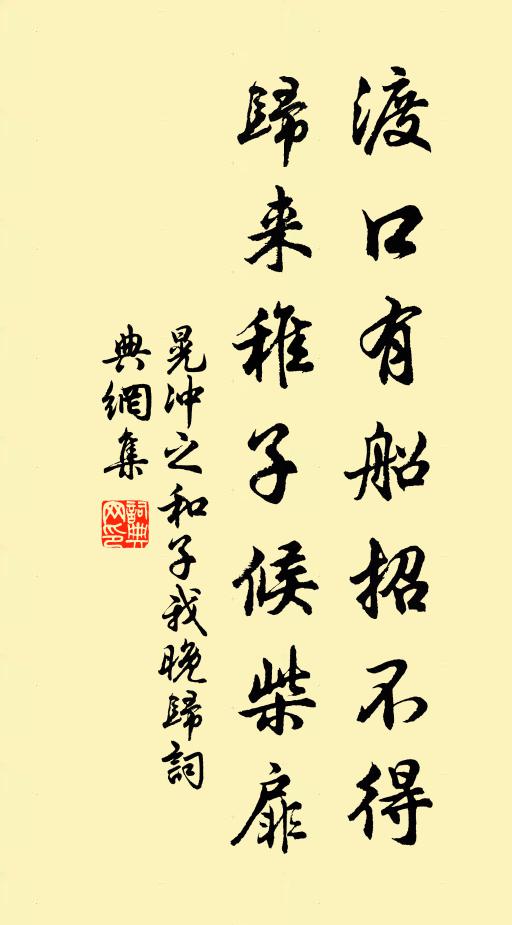 渡口有船招不得
歸来稚子候柴扉
晁沖之和子我晚歸詞
典網集
詞典网印